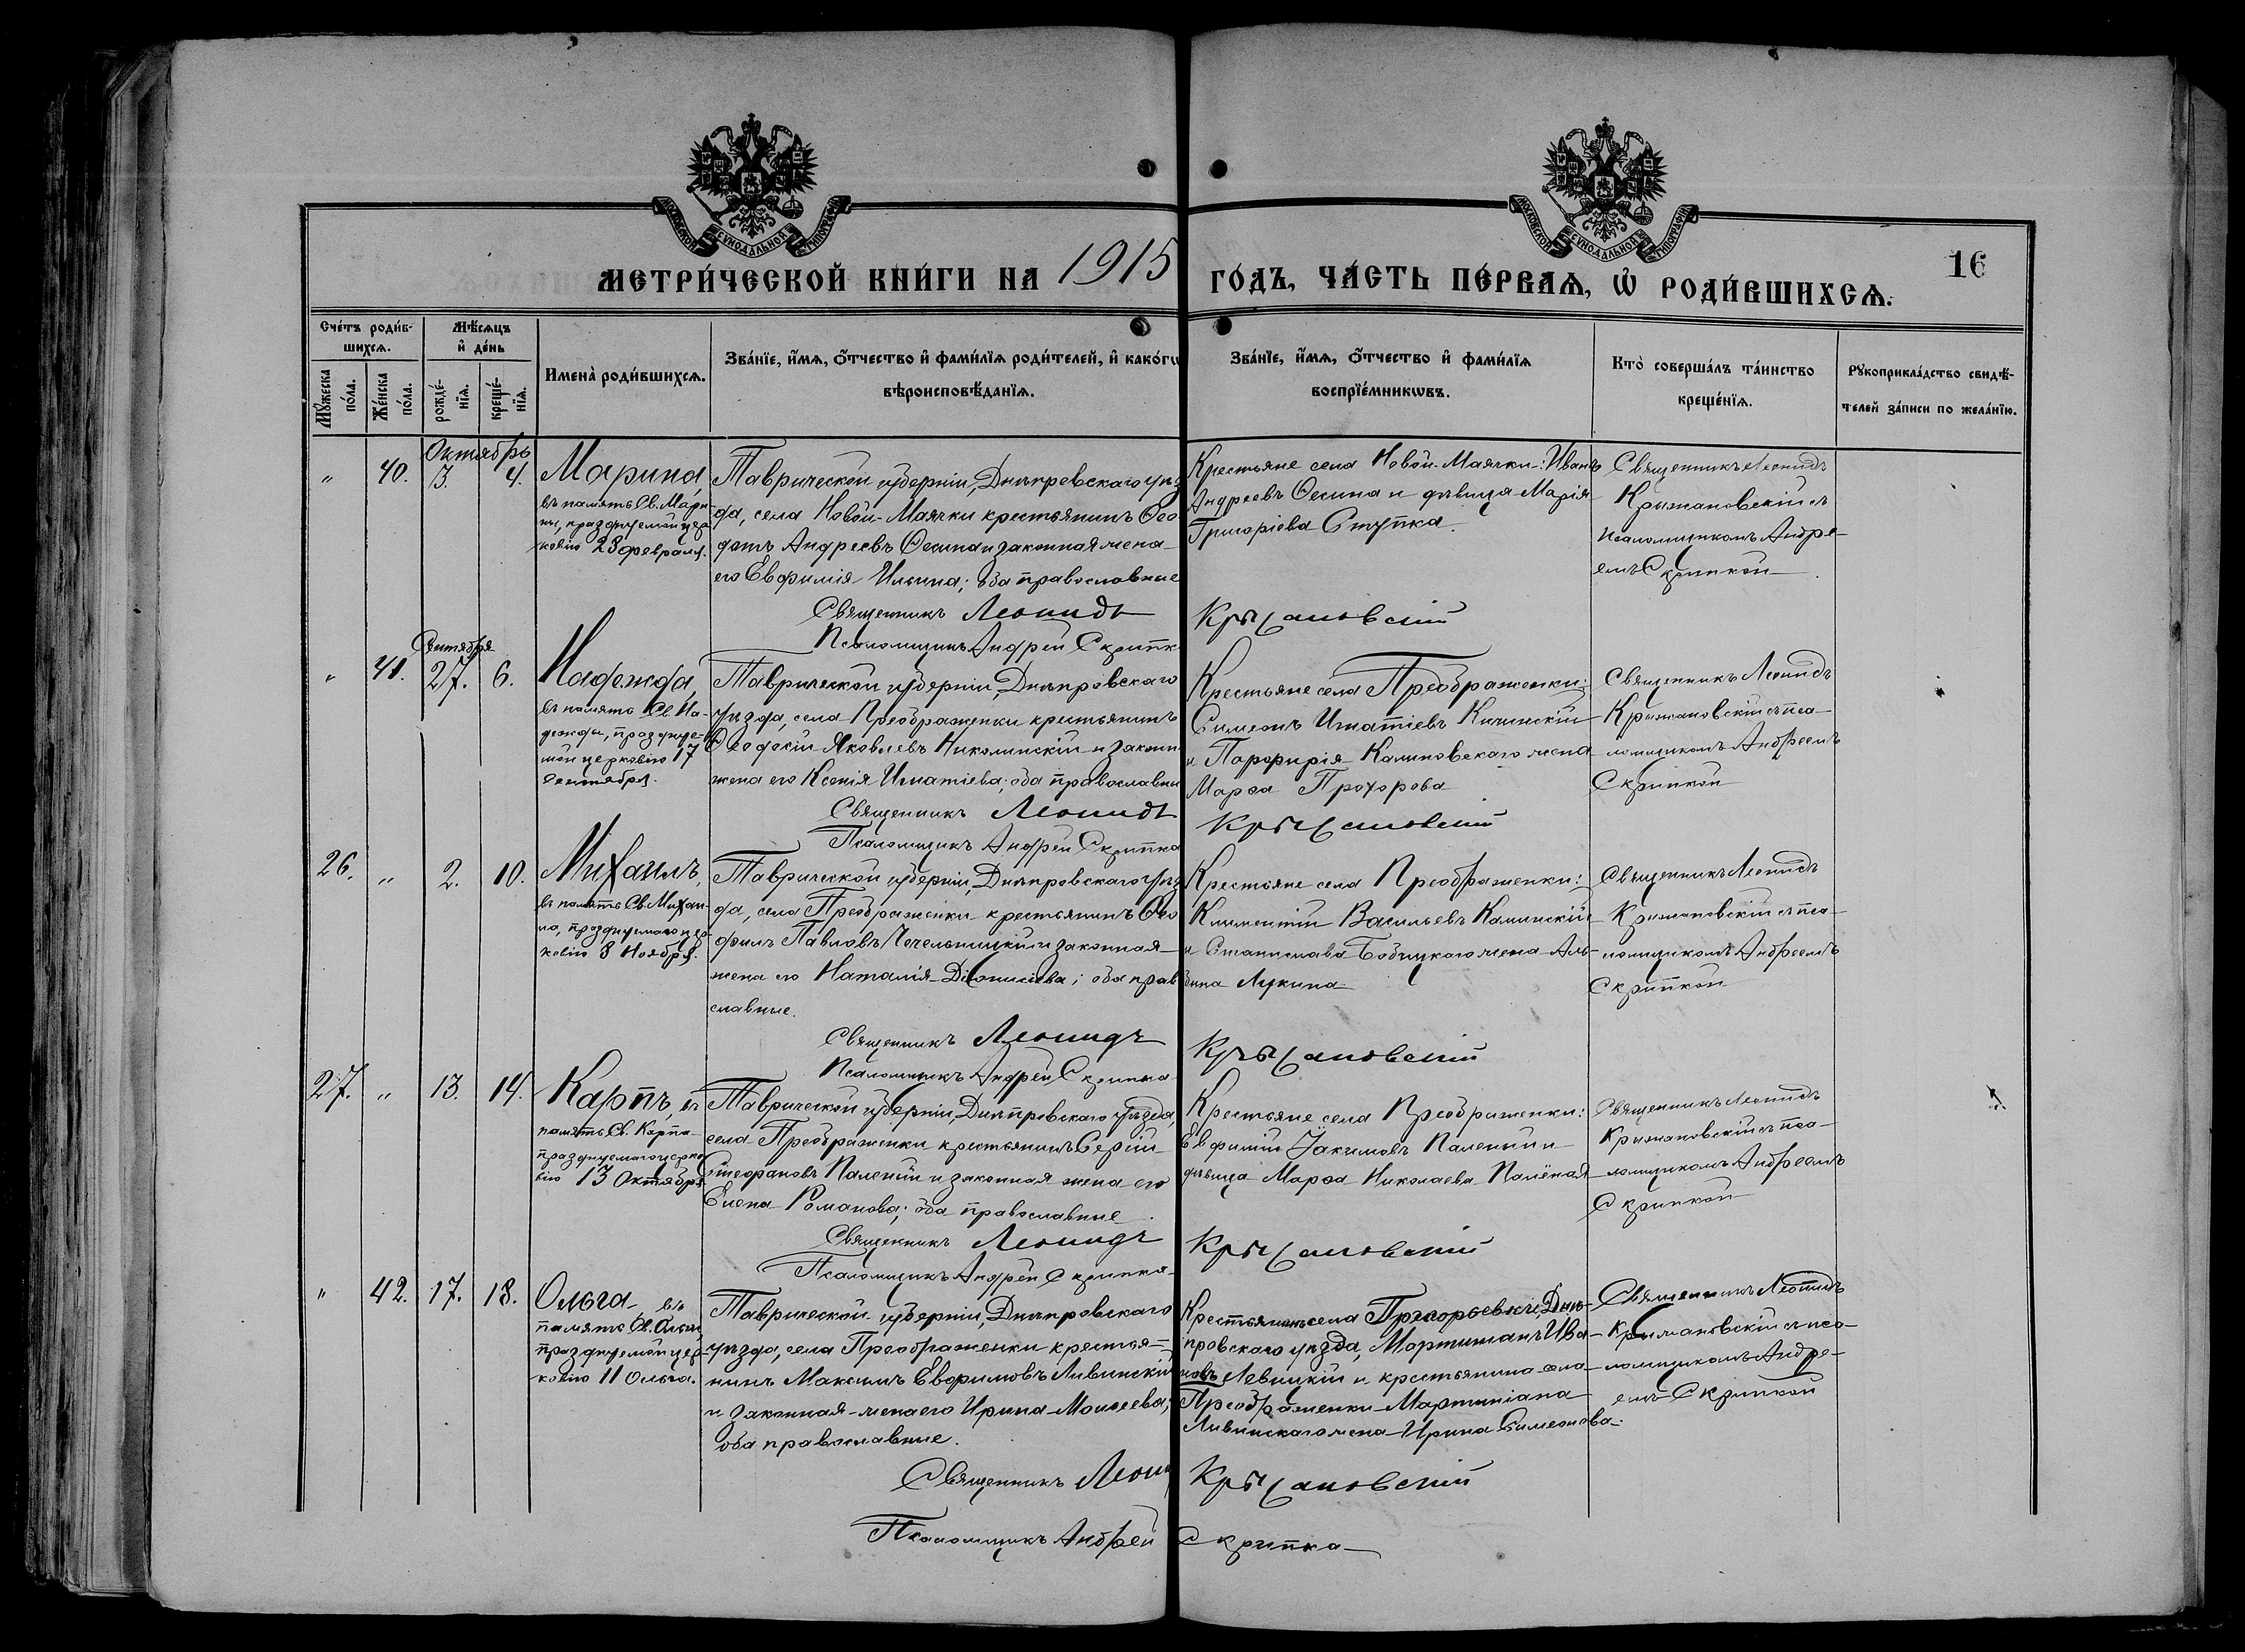 МОСКОВСКОЙ СѴНОДАЛЬНОЙ ТИПОГРАФІИ
МОСКОВСКОЙ СѴНОДАЛЬНОЙ ТИПОГРАФІИ
МЕТРИ́ЧЕСКОЙ КНИ́ГИ НА 1915 ГО́ДЪ, ЧА́СТЬ ПЕ́РВАѦ, Ѡ҆ РОДИ́ВШИХСѦ.
16
Сче́тъ роди́в-
шихсѧ.
Мꙋ́жеска по́ла.
Же́нска по́ла.
Мѣ́сѧцъ
и҆ де́нь
рожде́-
нїѧ.
креще́-
нїѧ.
Имена̀ роди́вшихсѧ.
Зва́нїе, и҆́мѧ, ѻ҆́тчество и҆ фами́лїѧ роди́телей, и҆ како́гѡ
вѣроисповѣ́данїѧ.
Зва́нїе, и҆́мѧ, ѻ҆́тчество и҆ фами́лїѧ
воспрїе́мникѡвъ.
Кто̀ соверша́лъ та́инство
креще́нїѧ.
Рꙋкоприкла́дство свидѣ́-
телей за́писи по жела́нїю.
Октябрь
" 40. 3. 4.
Марина,
въ память Св. Мари-
ны, празднуемой цер
ковію 28 февраля.
Таврической губерніи, Днѣпровскаго уѣз
да, села Новой-Маячки крестьянинъ Ѳео-
дотъ Андреевъ Ѳесина и законная жена
его Евфимія Ильина; оба православные
Крестьяне села Новой-Маячки: Иванъ
Андреевъ Ѳесина и дѣвица Марія
Григоріева Ступка.
Священникъ Леонидъ
Крыжановскій съ
псаломщикомъ Андре-
емъ Скрипкой
Священникъ Леонидъ Крыжановскій
Псаломщикъ Андрей Скрипк
Сентября
" 41. 27. 6.
Надежда,
въ память Св. На-
дежды, праздцуе-
мой церковію 17
Сентября.
Таврической губерніи, Днѣпровскаго
уѣзда, села Преображенки крестьянинъ
Ѳеодосій Яковлевъ Николинскій и законн
жена его Ксенія Игнатіева; оба православны
Крестьяне села Преображенки:
Симеонъ Игнатіевъ Кичинскій
и Порфирія Калиновскаго жена
Марѳа Прохорова
Священникъ Леонидъ
Крыжановскій съ пса-
ломщикомъ Андреемъ
Скрипкой
Священникъ Леонидъ Крыжановскій
Псаломщикъ Андрей Скрипка
26. " 2. 10.
Михаилъ,
въ память Св. Михаи-
ла, празднуемаго цер-
ковію 8 Ноября.
Таврической губерніи, Днѣпровскаго уѣз
да, села Преображенки крестьянинъ Ѳео
филъ Павловъ Чечельницкій и законная
жена его Наталія Діонисіева; оба прав
славные.
Крестьяне села Преображенки:
Климентій Васильевъ Каминскій
и Станислава Бобицкаго жена Аль-
бина Лукина
Священникъ Леонидъ
Крыжановскій съ пса-
ломщикомъ Андреемъ
Скрипкой
Священникъ Леонидъ Крыжановскій
Псаломщикъ Андрей Скрипка
27. " 13. 14.
Карпъ, въ
память Св. Карпа
празднуемаго церко
вію 13 Октября
Таврической губерніи, Днѣпровскаго уѣзда,
села Преображенки крестьянинъ Сергій
Стефановъ Паленый и законная жена его
Елена Романова; оба православные.
Крестьяне села Преображенки:
Евфимій Іакимовъ Паленый и
дѣвица Марѳа Николаева Паленая
Священникъ Леонидъ
Крыжановскій съ пса-
ломщикомъ Андреемъ
Скрипкой
Священникъ Леонидъ Крыжановскій
Псаломщикъ Андрей Скрипка
" 42. 17. 18.
Ольга въ
память Св. Ольги,
празднуемой цер-
ковію 11
Таврической губерніи, Днѣпровскаго
уѣзда, села Преображенки крестья-
нинъ Максимъ Евфимовъ Ливинскій
и законная жена его Ирина Моисеева;
оба православные.
Крестьянинъ села Днѣ-
провскаго уѣзда, Мартиніанъ Ива-
новъ Левицкій и крестьянина села
Преображенки Мартиніана
Ливинскаго жена Ирина Симеонова.
Священникъ Леонидъ
Крыжановскій съ пса-
ломщикомъ Андре-
емъ Скрипкой
Священникъ Леони Крыжановскій
Псаломщикъ Андрей Скрипка